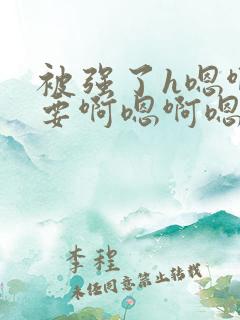 被强了h嗯
要啊嗯啊嗯
李程
未经同意禁止转载